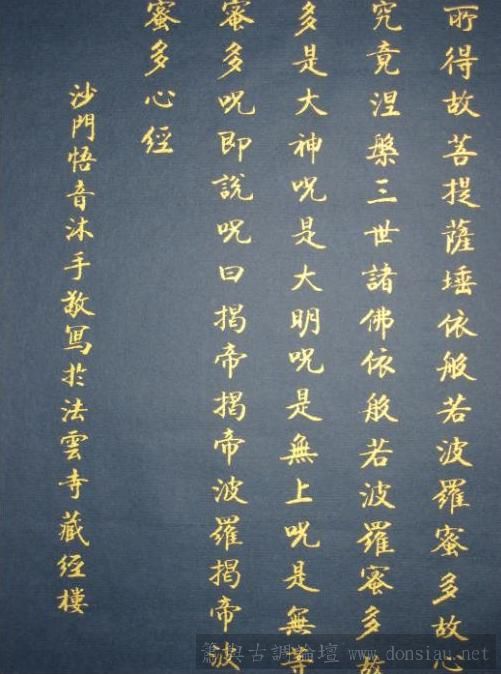 所得故菩提薩埵依般若波羅蜜多故心
究竟涅槃三世諸佛依般若波羅蜜多故
多是大神咒是大明咒是無上咒是無等
蜜多咒即說咒曰揭帝揭帝波羅揭帝波
蜜多心經
沙門悟音沐手敬寫於法雲寺藏經樓
簫典古調論壇 www.donsiau.net